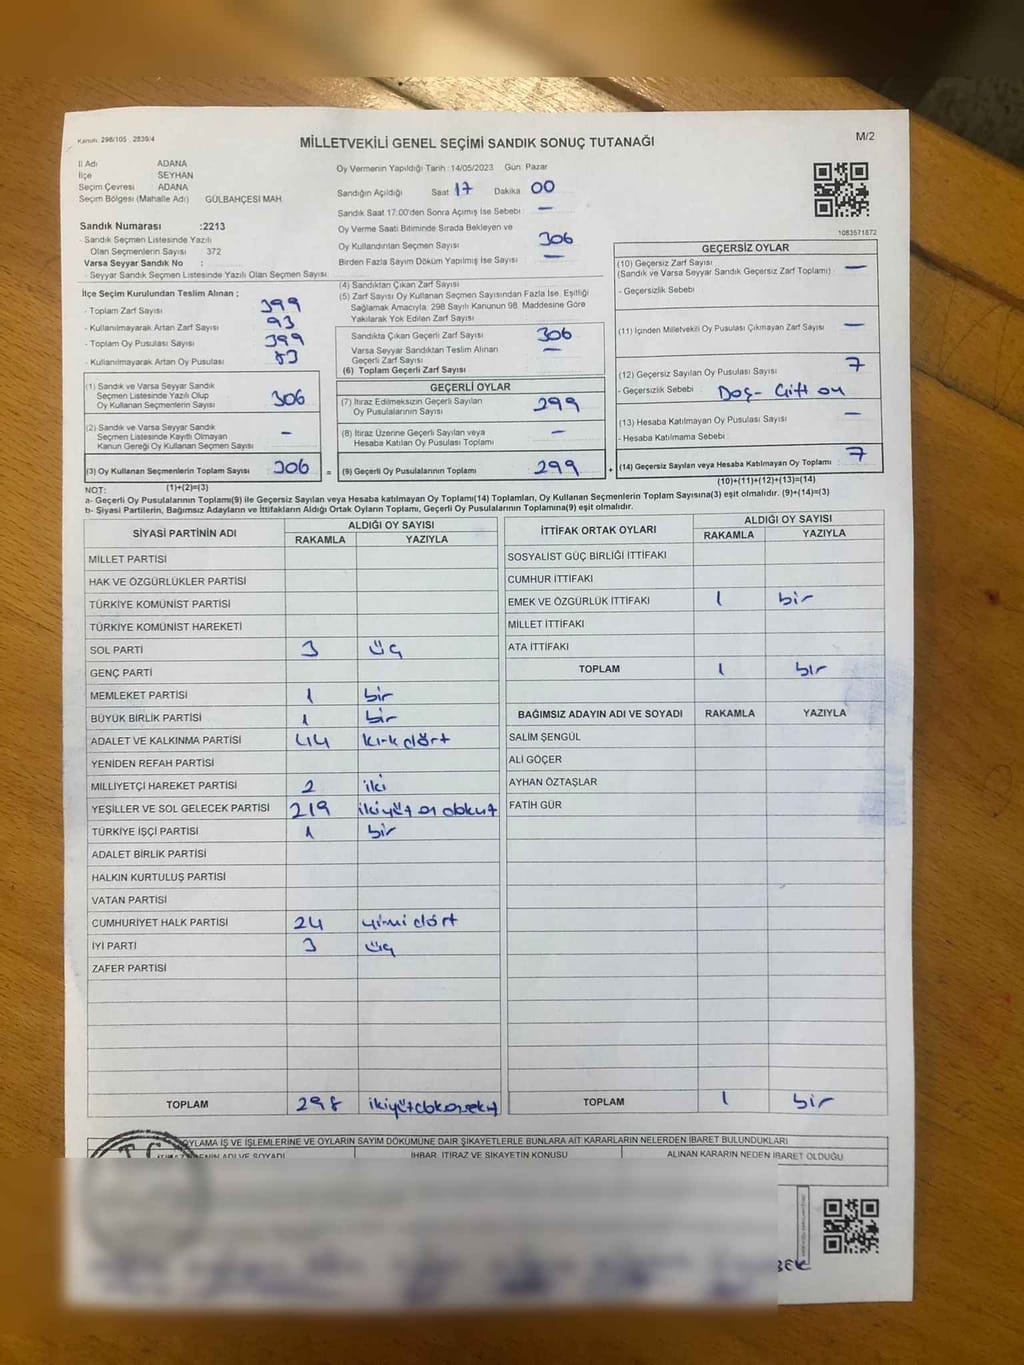 Kanun: 298/105 , 2839/4
MİLLETVEKİLİ GENEL SEÇİMİ SANDIK SONUÇ TUTANAĞI
M/2
İl Adı ADANA
İlçe SEYHAN
Seçim Çevresi ADANA
Seçim Bölgesi (Mahalle Adı) GÜLBAHÇESİ MAH.
Sandık Numarası :2213
- Sandık Seçmen Listesinde Yazılı
Olan Seçmenlerin Sayısı 372
Varsa Seyyar Sandık No :
- Seyyar Sandık Seçmen Listesinde Yazılı Olan Seçmen Sayısı :
Oy Vermenin Yapıldığı Tarih :14/05/2023 Gün Pazar
Sandığın Açıldığı Saat 17 Dakika 00
Sandık Saat 17:00'den Sonra Açımış İse Sebebi : —
Oy Verme Saati Bitiminde Sırada Bekleyen ve
Oy Kullandırılan Seçmen Sayısı 306
Birden Fazla Sayım Döküm Yapılmış İse Sayısı : —
1083571872
İlçe Seçim Kurulundan Teslim Alınan ;
- Toplam Zarf Sayısı : 399
- Kullanılmayarak Artan Zarf Sayısı : 93
- Toplam Oy Pusulası Sayısı : 399
- Kullanılmayarak Artan Oy Pusulası
(1) Sandık ve Varsa Seyyar Sandık
Seçmen Listesinde Yazılı Olup
Oy Kullanan Seçmenlerin Sayısı 306
(2) Sandık ve Varsa Seyyar Sandık
Seçmen Listesinde Kayıtlı Olmayan
Kanun Gereği Oy Kullanan Seçmen Sayısı –
(3) Oy Kullanan Seçmenlerin Toplam Sayısı 306 =
(1)+(2)=(3)
(4) Sandıktan Çıkan Zarf Sayısı :
(5) Zarf Sayısı Oy Kullanan Seçmen Sayısından Fazla İse, Eşitliği
Sağlamak Amacıyla, 298 Sayılı Kanunun 98. Maddesine Göre
Yakılarak Yok Edilen Zarf Sayısı :
Sandıkta Çıkan Geçerli Zarf Sayısı 306
Varsa Seyyar Sandıktan Teslim Alınan
Geçerli Zarf Sayısı —
(6) Toplam Geçerli Zarf Sayısı
GEÇERLİ OYLAR
(7) İtiraz Edilmeksizin Geçerli Sayılan
Oy Pusulasının Sayısı 299
(8) İtiraz Üzerine Geçerli Sayılan veya
Hesaba Katılan Oy Pusulası Toplamı —
(9) Geçerli Oy Pusulalarının Toplamı 299 +
GEÇERSİZ OYLAR
(10) Geçersiz Zarf Sayısı —
(Sandık ve Varsa Seyyar Sandık Geçersiz Zarf Toplamı) :
- Geçersizlik Sebebi :
(11) İçinden Milletvekili Oy Pusulası Çıkmayan Zarf Sayısı : —
(12) Geçersiz Sayılan Oy Pusulası Sayısı : 7
- Geçersizlik Sebebi : Boş- Çift oy
(13) Hesaba Katılmayan Oy Pusulası Sayısı : —
- Hesaba Katılmama Sebebi :
(14) Geçersiz Sayılan veya Hesaba Katılmayan Oy Toplamı : 7
(10)+(11)+(12)+(13)=(14)
NOT:
a- Geçerli Oy Pusulalarının Toplamı(9) ile Geçersiz Sayılan veya Hesaba katılmayan Oy Toplamı(14) Toplamları, Oy Kullanan Seçmenlerin Toplam Sayısına(3) eşit olmalıdır. (9)+(14)=(3)
b- Siyasi Partilerin, Bağımsız Adayların ve İttifakların Aldığı Ortak Oyların Toplamı, Geçerli Oy Pusulalarının Toplamına(9) eşit olmalıdır.
SİYASİ PARTİNİN ADI ALDIĞI OY SAYISI
RAKAMLA YAZIYLA
MİLLET PARTİSİ
HAK VE ÖZGÜRLÜKLER PARTİSİ
TÜRKİYE KOMÜNİST PARTİSİ
TÜRKİYE KOMÜNİST HAREKETİ
SOL PARTİ 3 üç
GENÇ PARTİ
MEMLEKET PARTİSİ 1 bir
BÜYÜK BİRLİK PARTİSİ 1 bir
ADALET VE KALKINMA PARTİSİ 44 kırkdört
YENİDEN REFAH PARTİSİ
MİLLİYETÇİ HAREKET PARTİSİ 2 iki
YEŞİLLER VE SOL GELECEK PARTİSİ 219
TÜRKİYE İŞÇİ PARTİSİ 1 bir
ADALET BİRLİK PARTİSİ
HALKIN KURTULUŞ PARTİSİ
VATAN PARTİSİ
CUMHURİYET HALK PARTİSİ 24 yirmi dört
İYİ PARTİ 3 üç
ZAFER PARTİSİ
TOPLAM 298
İTTİFAK ORTAK OYLARI ALDIĞI OY SAYISI
RAKAMLA YAZIYLA
SOSYALİST GÜÇ BİRLİĞİ İTTİFAKI
CUMHUR İTTİFAKI
EMEK VE ÖZGÜRLÜK İTTİFAKI 1 bir
MİLLET İTTİFAKI
ATA İTTİFAKI
TOPLAM 1 bir
BAĞIMSIZ ADAYIN ADI VE SOYADI RAKAMLA YAZIYLA
SALİM ŞENGÜL
ALİ GÖÇER
AYHAN ÖZTAŞLAR
FATİH GÜR
TOPLAM 1 bir
OYLAMA İŞ VE İŞLEMLERİNE VE OYLARIN SAYIM DÖKÜMÜNE DAİR ŞİKAYETLERLE BUNLARA AİT KARARLARIN NELERDEN İBARET BULUNDUKLARI
ADI VE SOYADI İHBAR, İTİRAZ VE ŞİKAYETİN KONUSU ALINAN KARARIN NEDEN İBARET OLDUĞU
T.C.